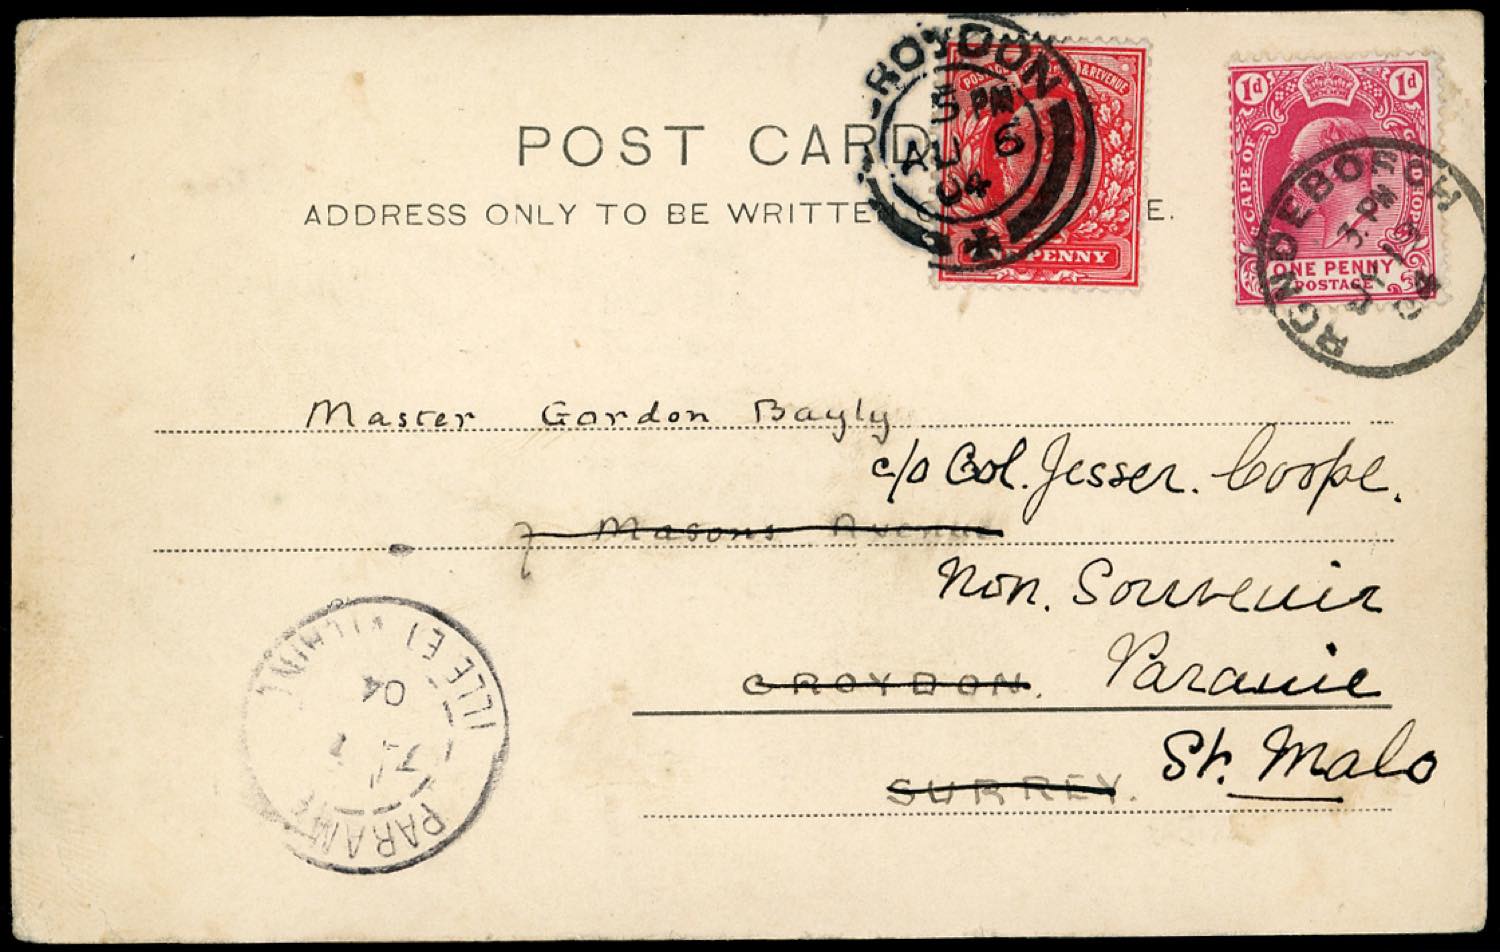 POST CARD
ADDRESS ONLY TO BE WRITTEN E.
CROYDON
5 PM
AU 6
04
POSTAGE & REVENUE
ONE PENNY
1d 1d
CAPE OF HOPE
ONE PENNY
POSTAGE
RONDEBOSCH
3. PM
JY 13
04
Master Gordon Bayly
c/o Col. Jesser. Coope.
7 Masons Avenue
Mon. Souvenir
CROYDON. Paramé
SURREY. St. Malo
PARAMÉ
04
ILLE ET VILAINE